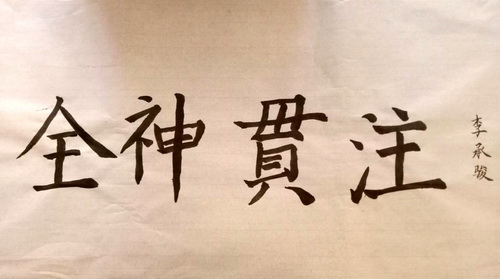 全神貫注
李承駿